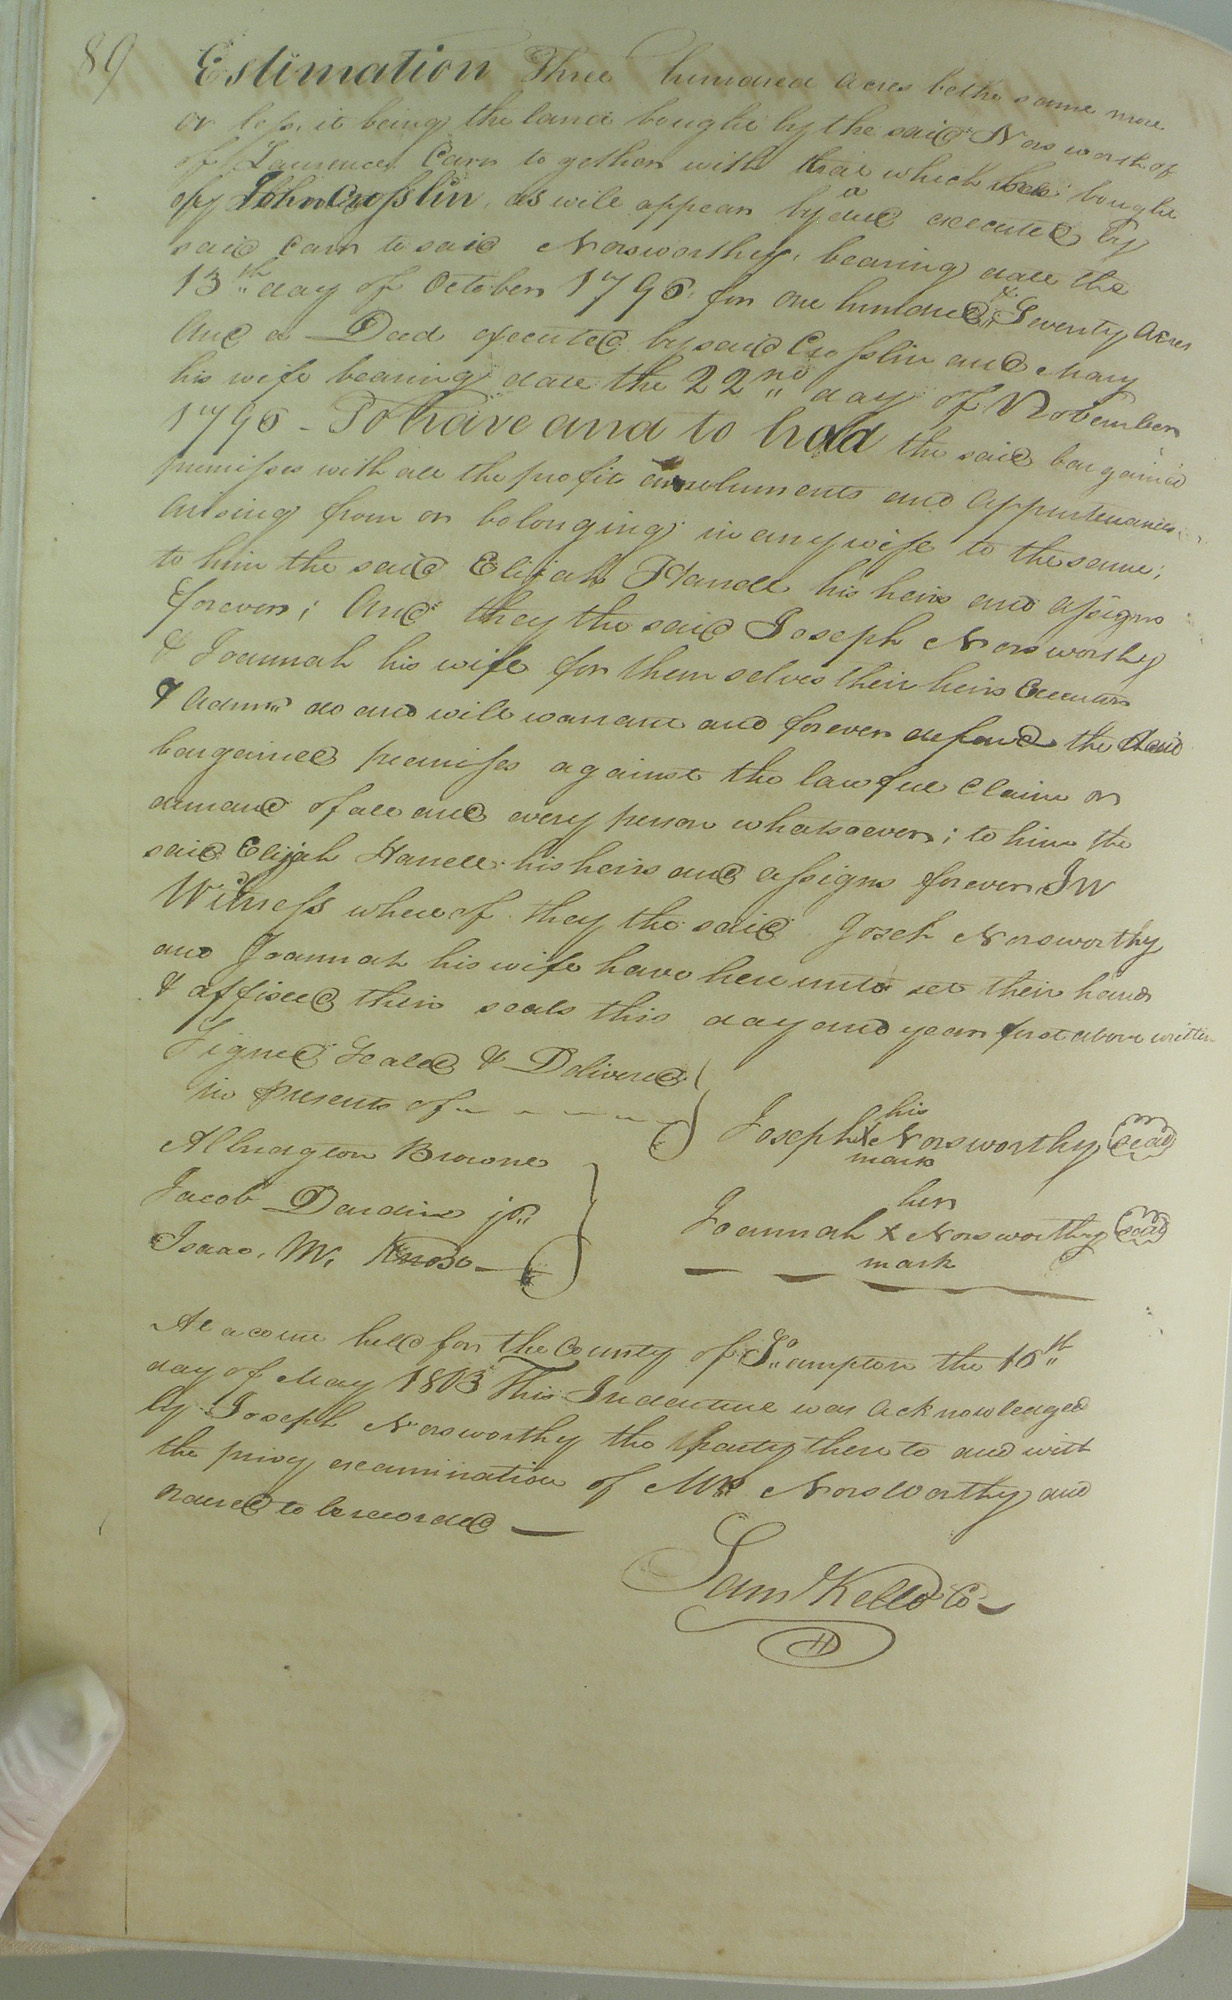 89
Estimation Three hundred acres be the same more
or less, it being the land bought by the said Norsworthy of
of Laurence Carr together with that which was bought
of John Crosslin, as will appear by a deed executed by
said Carr to said Norsworthy, bearing date the
13th day of October 1796, for one hundred & Seventy Acres
And a Deed executed by said Crosslin and Mary
his wife bearing date the 22nd day of November
1796 - To have and to hold the said bargained
premisses with all the profits emoluments and appurtenances
arising from or belonging in any wise to the same;
to him the said Elijah Harrell his heirs and assigns
forever; And they the said Joseph Norsworthy
& Joannah his wife for themselves their heirs Executors
& Admrs do and will warrant and forever defend the said
bargained premisses against the lawful claim or
demand of all and every person whatsoever; to him the
said Elijah Harrell his heirs and assigns forever In
Witness whereof they the said Joseh Norsworthy
and Joannah his wife have hereunto set their hands
& affixed their seals this day and year first above written
Signed Sealed & Delivered
in presents of
Joseph his X mark Norsworthy seal
Albridgton Browne
Jacob Darden jr.
Joannah her X mark Norsworthy seal
Isaac W.
At a court held for the County of So.ampton the 16th
day of May 1803 This Indenture was acknowledged
by Joseph Norsworthy the party thereto and with
the privy examination of Mrs Norsworthy and
ordered to be recorded —
Sam Kello Cc